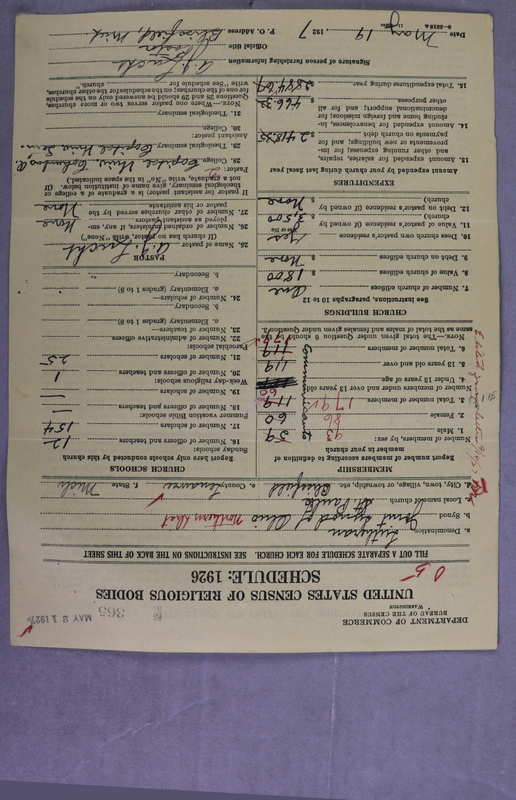 DEPARTMENT OF COMMERCE
BUREAU OF THE CENSUS
WASHINGTON
365
MAY 21 1927
UNITED STATES CENSUS OF RELIGIOUS BODIES
SCHEDULE: 1926
FILL OUT A SEPARATE SCHEDULE FOR EACH CHURCH. SEE INSTRUCTIONS ON THE BACK OF THIS SHEET
a. Denomination Lutheran
b. Synod Joint Synod of Ohio Northern Dist
c. Local name of church St. Pauls
d. City, town, village, or township, etc. Blissfield County Lenawee State Mich
MEMBERSHIP
Report number of members according to definition of member in your church
Number of members, by sex:
1. Male 59 93
2. Female 60 86
3. Total number of members 119 179
Number of members under and over 13 years old
4. Under 13 years of age 60
5. 13 years and over 119
6. Total number of members 119 179
Communicants
NOTE.—The total given under Question 6 should be the same as the total of males and females given under Question 3.
CHURCH BUILDINGS
See instruction, paragraphs 10 to 12
7. Number of church edifices One
8. Value of church edifices $ 1800
9. Debt on church edifices $ None
10. Does church own pastor's residence Yes
11. Value of pastor's residence (if owned by church) $ 3,500
12. Debt on pastor's residence (if owned by church) $ None
EXPENDITURES
Amount expended by your church during last fiscal year
13. Amount expended for salaries, repairs, and other running expenses; for improvements or new building; and for payments on church debt $ 2418.35
14. Amount expended for benevolences, including home and foreign missions; for denominational support; and for all other purposes $ 466.32
15. Total expenditures during year $ 2884.67
CHURCH SCHOOLS
Report here only schools conducted by this church
Sunday schools:
16. Number of officers and teachers 12
17. Number of scholars 154
Summer vacation Bible schools:
18. Number of officers and teachers —
19. Number of scholars —
Week-day religious schools:
20. Number of officers and teachers 1
21. Number of scholars 25
Parochial schools:
22. Number of administrative officers
23. Number of teachers—
a. Elementary (grades 1 to 8)
b. Secondary
24. Number of scholars—
a. Elementary (grades 1 to 8)
b. Secondary
PASTOR
25. Name of pastor A. J. Lucht
(If church has no pastor, write "None")
26. Number of ordained ministers, if any, employed as assistant pastors None
27. Number of other churches served by the pastor or his assistants None
If pastor (or assistant pastor) is a graduate of a college or theological seminary, give name of institution below. (If not a graduate, write "No" in the space indicated.)
Pastor:
28. College Capital Univ. Columbus O.
29. Theological seminary Capital Univ. Sem.
Assistant pastor:
30. College
31. Theological seminary
NOTE.—Where one pastor serves two or more churches, Questions 28 and 29 should be answered only on the schedule for one of the churches; on the schedules for the other churches, write "See schedule for church."
Signature of person furnishing information A. J. Lucht
Official title Pastor
P. O. Address Blissfield, Mich
Date May 19 1927
8—5519a